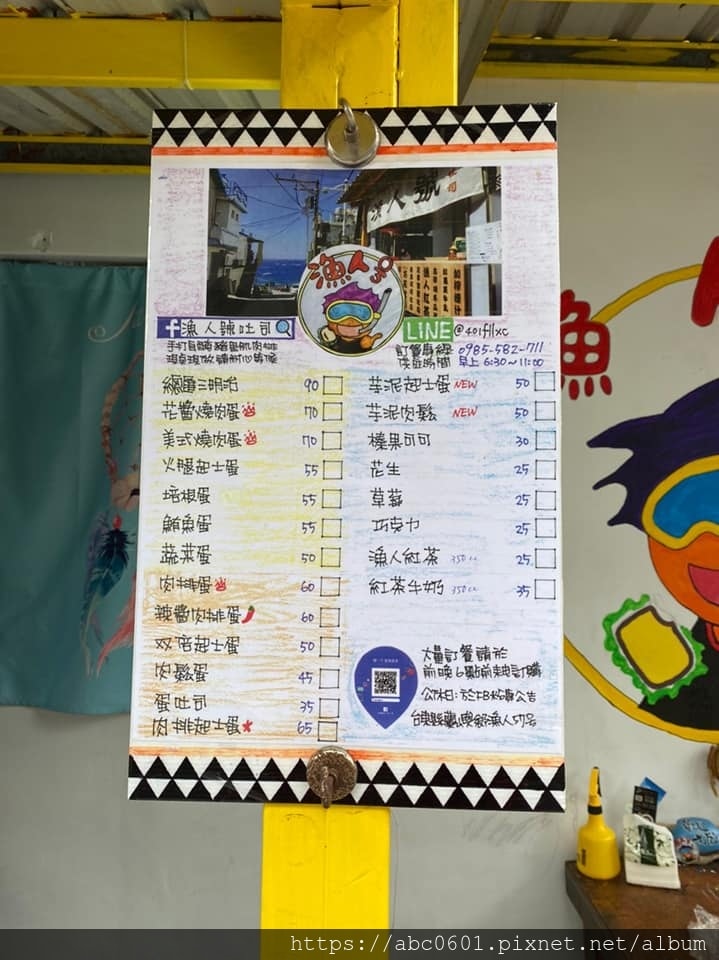 漁人號
漁人號吐司
LINE @401fllxc
手打肉麵糰豬里肌肉排
現点現做請耐心等候
訂餐專線 0985-582-711
營業時間 早上 6:30~11:00
總匯三明治 90
花醬燒肉蛋 70
美式燒肉蛋 70
火腿起士蛋 55
培根蛋 55
鮪魚蛋 55
蔬菜蛋 50
肉排蛋 60
辣醬肉排蛋 60
双倍起士蛋 50
肉鬆蛋 45
蛋吐司 35
肉排起士蛋 65
芋泥起士蛋 NEW 50
芋泥肉鬆 NEW 50
榛果可可 30
花生 25
草莓 25
巧克力 25
漁人紅茶 350cc 25
紅茶牛奶 350cc 35
大量訂餐請於
前晚6點前來電訂購
公休日:於FB粉專公告
台東縣蘭嶼鄉漁人57号
漁
https://abc0601.pixnet.net/album